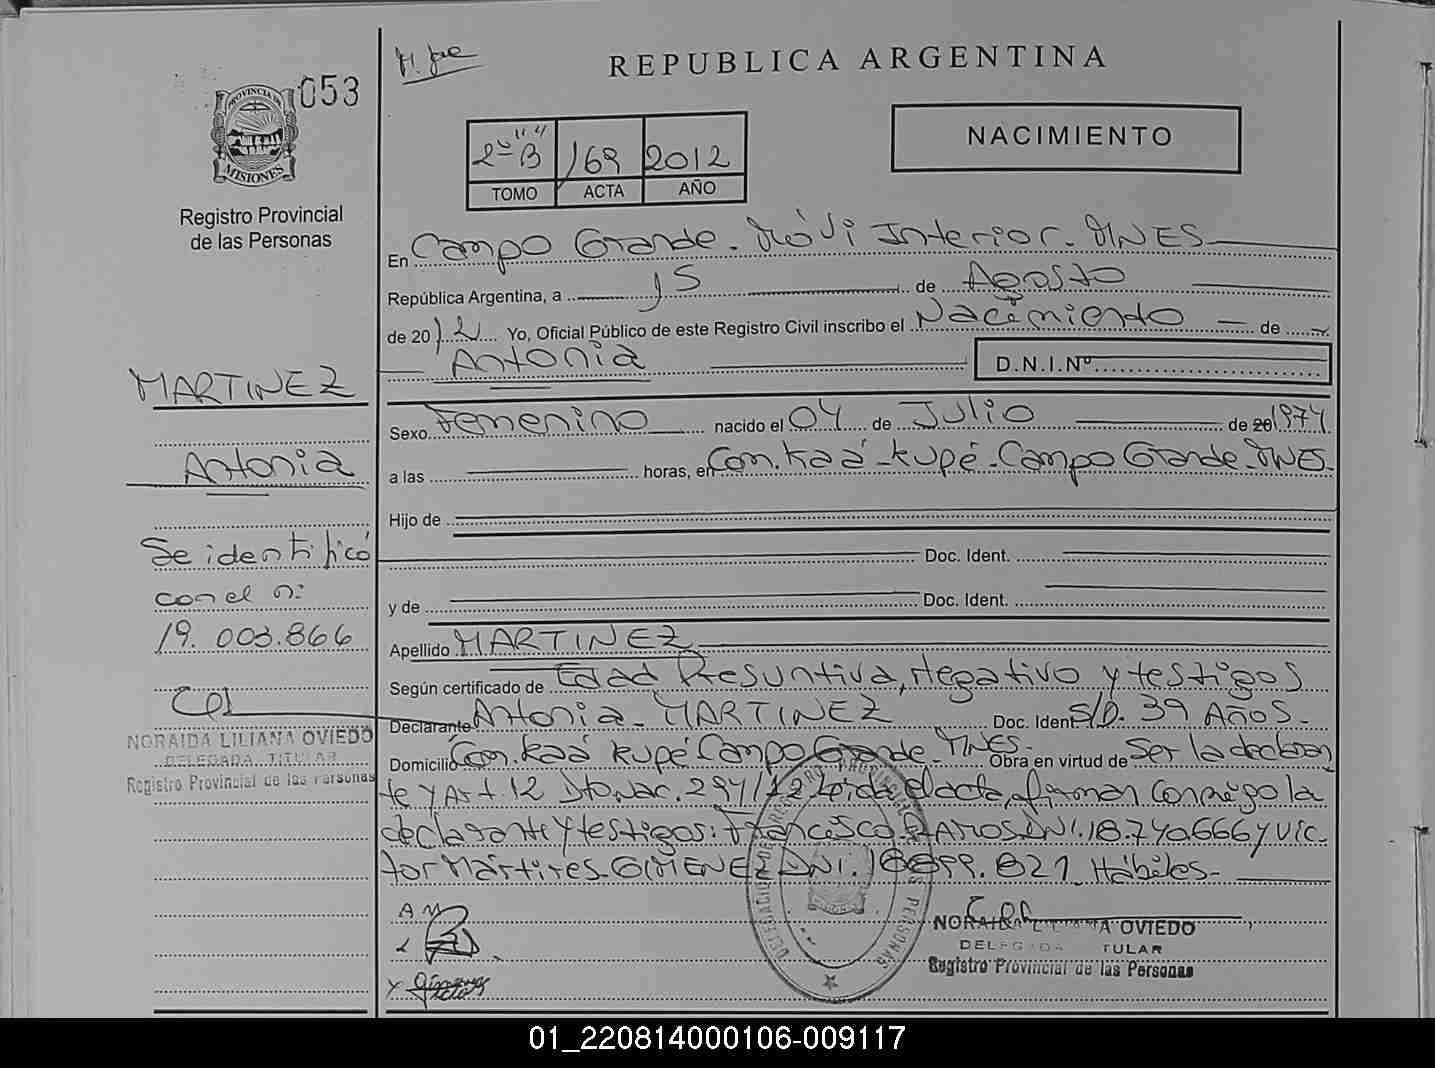 053
PROVINCIA DE
MISIONES
Registro Provincial
de las Personas
REPUBLICA ARGENTINA
NACIMIENTO
2º B 169 2012
TOMO ACTA AÑO
En Campo Grande - Móvil Interior - MNES
República Argentina, a 15 de Agosto
de 2012 Yo, Oficial Público de este Registro Civil inscribo el Nacimiento de
Antonia D.N.I.Nº
Sexo Femenino nacido el 04 de Julio de 1974
a las horas, en Com. Kaá-kupé - Campo Grande - MNES.
Hijo de
Doc. Ident.
y de Doc. Ident.
Apellido MARTINEZ
Según certificado de Edad Presuntiva, Negativo y testigos
Declarante Antonia - MARTINEZ Doc. Ident S/D. 39 AÑOS -
Domicilio Com. Kaá kupé - Campo Grande - MNES. Obra en virtud de Ser la declaran
te y Art. 12 Dto. Nac. 294/12. Leída el acta, firman conmigo la
declarante y testigos: Francisco RAMOS DNI. 18.740.666 y Vic-
tor Mártires GIMENEZ DNI. Hábiles -
AM
NORAIDA LILIANA OVIEDO
DELEGADA TITULAR
Registro Provincial de las Personas
MARTINEZ
Antonia
Se identificó
con el n:
19.003.866
NORAIDA LILIANA OVIEDO
DELEGADA TITULAR
Registro Provincial de las Personas
01_220814000106-009117